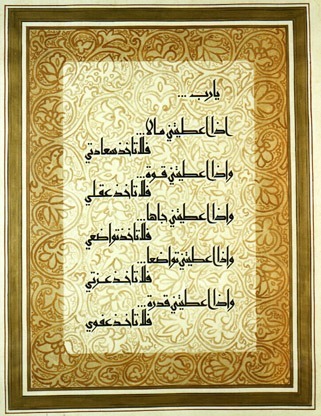 يارب ...
اذا اعطيتني مالا...
فلا تاخذ سعادتي
واذا اعطيتني قوة...
فلا تاخذ عقلي
واذا اعطيتني جاها...
فلا تاخذ تواضعي
واذا اعطيتني تواضعا...
فلا تاخذ عزتي
واذا اعطيتني قدرة...
فلا تاخذ عفوي